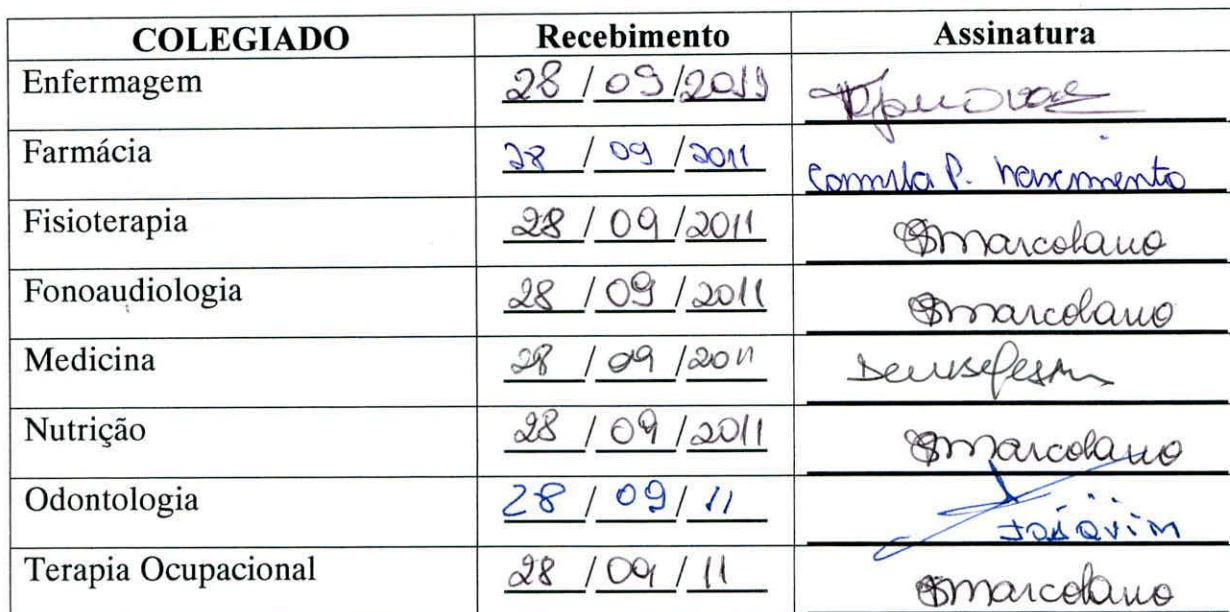 COLEGIADO Recebimento Assinatura
Enfermagem 28 / 09 / 2011
Farmácia 28 / 09 / 2011 Camila P. Nascimento
Fisioterapia 28 / 09 / 2011 Marcolano
Fonoaudiologia 28 / 09 / 2011 Marcolano
Medicina 28 / 09 / 2011
Nutrição 28 / 09 / 2011 Marcolano
Odontologia 28 / 09 / 11 Joaquim
Terapia Ocupacional 28 / 09 / 11 Marcolano